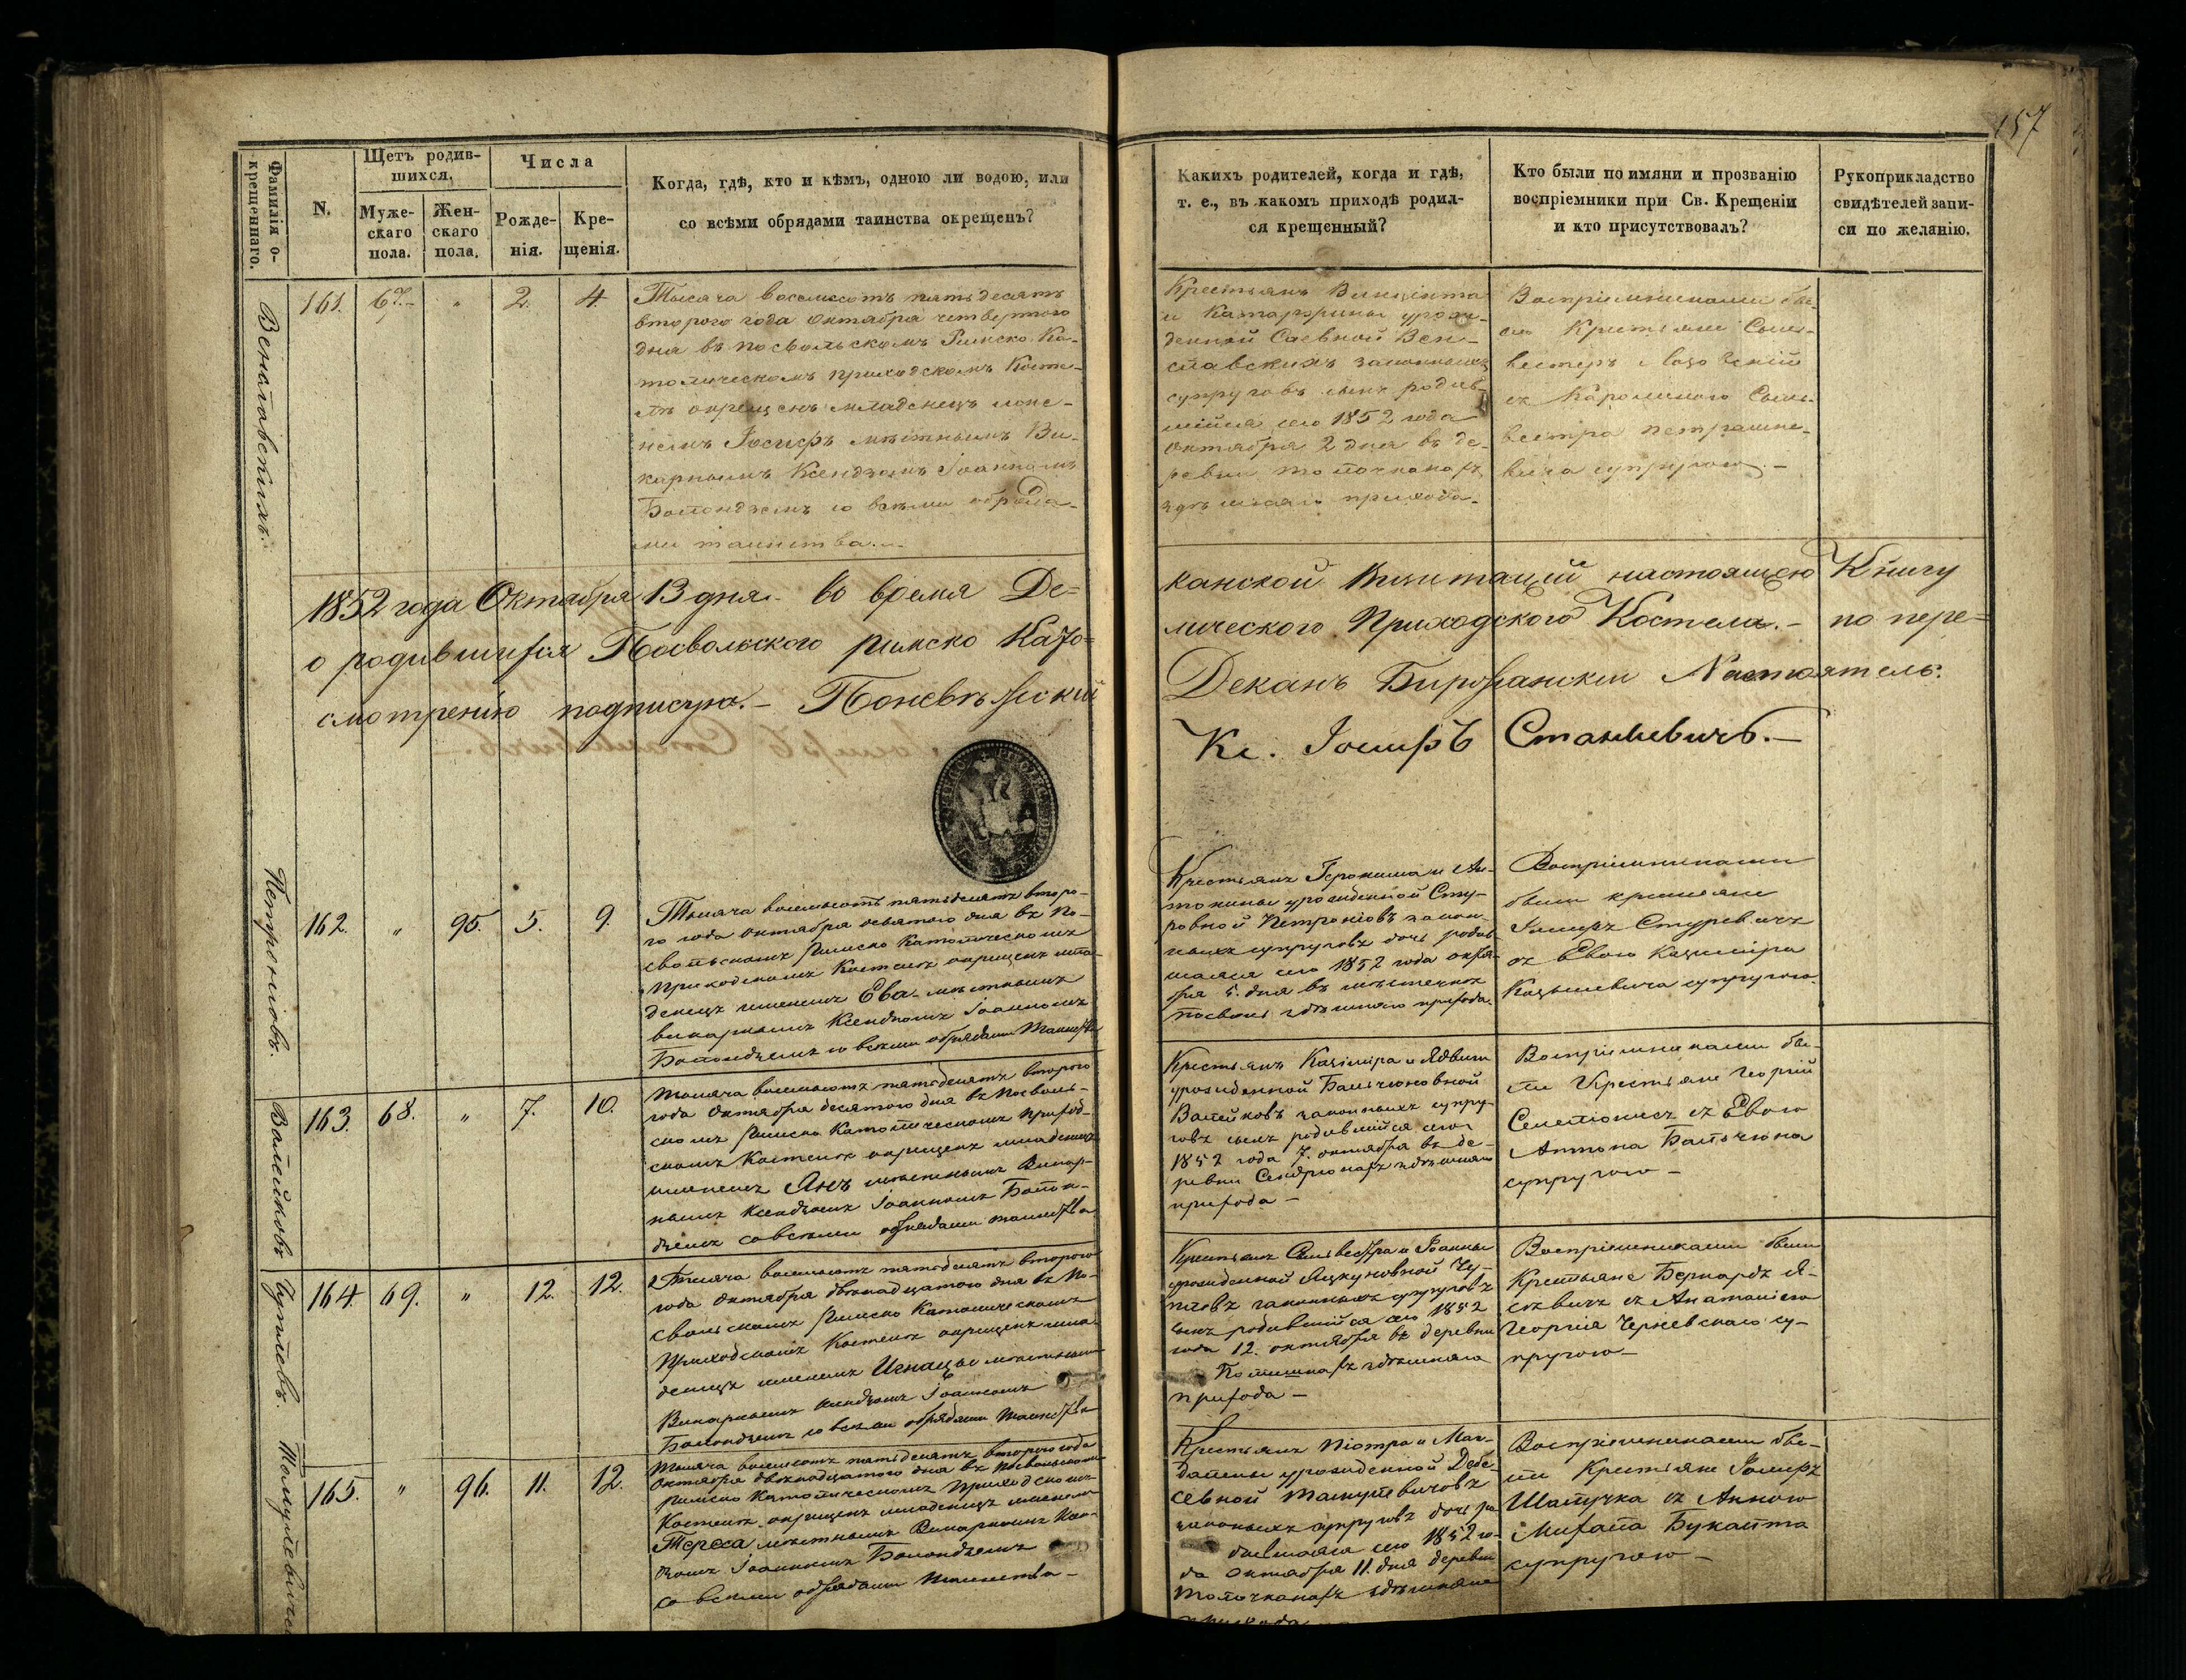 157
Фамилія о-
крещеннаго.
N.
Щетъ родив-
шихся.
Муже-
скаго
пола.
Жен-
скаго
пола.
Числа
Рожде-
нія.
Кре-
щенія.
Когда, гдѣ, кто и кѣмъ, одною ли водою, или
со всѣми обрядами таинства окрещенъ?
Какихъ родителей, когда и гдѣ,
т. е., въ какомъ приходѣ родил-
ся крещенный?
Кто были по имяни и прозванію
воспріемники при Св. Крещеніи
и кто присутствовалъ?
Рукоприкладство
свидѣтелей запи-
си по желанію.
161. 67. „ 2. 4.
Тысяча восемьсотъ пятьдесятъ
втораго года Октября четвертаго
дня въ Посвольскомъ Римско-Ка-
толическомъ приходскомъ Косте-
лѣ окрещенъ младенецъ име-
немъ Іосифъ мѣстнымъ Ви-
карнымъ Ксендзомъ Іоанномъ
со всѣми обряда-
ми таинства.
Крестьянъ Винцента
и Катаржины урож-
денной
законныхъ
супруговъ сынъ родив-
шійся сего 1852 года
Октября 2 дня въ де-
ревни
здѣшняго прихода.
Воспріемниками бы-
ли Крестьяне Силь-
вестеръ
съ Каролиною Силь-
вестра
супругою. –
1852 года Октября 13 дня во время Де-
канской Визитаціи настоящею Книгу
о родившихся Посвольскаго Римско Като-
лическаго Приходскаго Костела. – по пере-
смотрѣнію подписую. – Поневѣжскій
Деканъ Биржанскій Настоятель:
Кс. Іосифъ Станкевичъ. –
Петроніовъ.
162. „ 95. 5. 9.
Тысяча восемьсотъ пятьдесятъ второ-
го года октября девятаго дня въ По-
свольскомъ Римско Католическомъ
Приходскомъ Костелѣ окрещенъ мла-
денецъ именемъ Ева мѣстнымъ
викарнымъ Ксендзомъ Іоанномъ
со всѣми обрядами Таинства
Крестьянъ Геронима и Ан-
тонины урожденной Сту-
ровной Петроніовъ закон-
ныхъ супруговъ дочь родив-
шаяся сего 1852 года октя-
бря 5. дня въ мѣстечкѣ
Посволь здѣшняго прихода.
Воспріемниками
были крестьяне
Іосифъ Стуревичъ
съ Евою Казиміра
супругою.
Валейковъ
163. 68. „ 7. 10.
Тысяча восемьсотъ пятьдесятъ втораго
года Октября десятаго дня въ Посволь-
скомъ Римско Католическомъ Приход-
скомъ Костелѣ окрещенъ младенецъ
именемъ Янъ мѣстнымъ Викар-
нымъ Ксендзомъ Іоанномъ
со всѣми обрядами таинства
Крестьянъ Казиміра и Ядвиги
урожденной Бальчюновной
Валейковъ законныхъ супру-
говъ сынъ родившійся сего
1852 года 7. октября въ де-
ревни здѣшняго
прихода –
Воспріемниками бы-
ли Крестьяне Георгій
съ Евою
Антона Бальчюна
супругою –
164. 69. „ 12. 12.
Тысяча восемьсотъ пятьдесятъ втораго
года Октября двѣнадцатаго дня въ По-
свольскомъ Римско Католическомъ
Приходскомъ Костелѣ окрещенъ мла-
денецъ именемъ Игнацы мѣстнымъ
Викарнымъ Ксендзомъ Іоанномъ
со всѣми обрядами Таинства
Крестьянъ Сильвестра и Іоанны
урожденной Яцкуновной
законныхъ супруговъ
сынъ родившійся сего 1852
года 12. октября въ деревни
здѣшняго
прихода –
Воспріемниками были
Крестьяне Бернардъ
съ Анатоліею
Георгія Чернев су-
пругою –
165. „ 96. 11. 12.
Тысяча восемьсотъ пятьдесятъ втораго года
Октября двѣнадцатаго дня въ Посвольскомъ
Римско Католическомъ Приходскомъ
Костелѣ окрещенъ младенецъ именемъ
Тереса мѣстнымъ Викарнымъ Ксен-
дзомъ Іоанномъ
со всѣми обрядами Таинства –
Крестьянъ Піотра и Маг-
далены урожденной
законныхъ супруговъ дочь ро-
дившаяся сего 1852 го-
да Октября 11. дня деревни
здѣшняго
прихода
Воспріемниками бы-
ли Крестьяне Іосифъ
съ Анною
супругою –